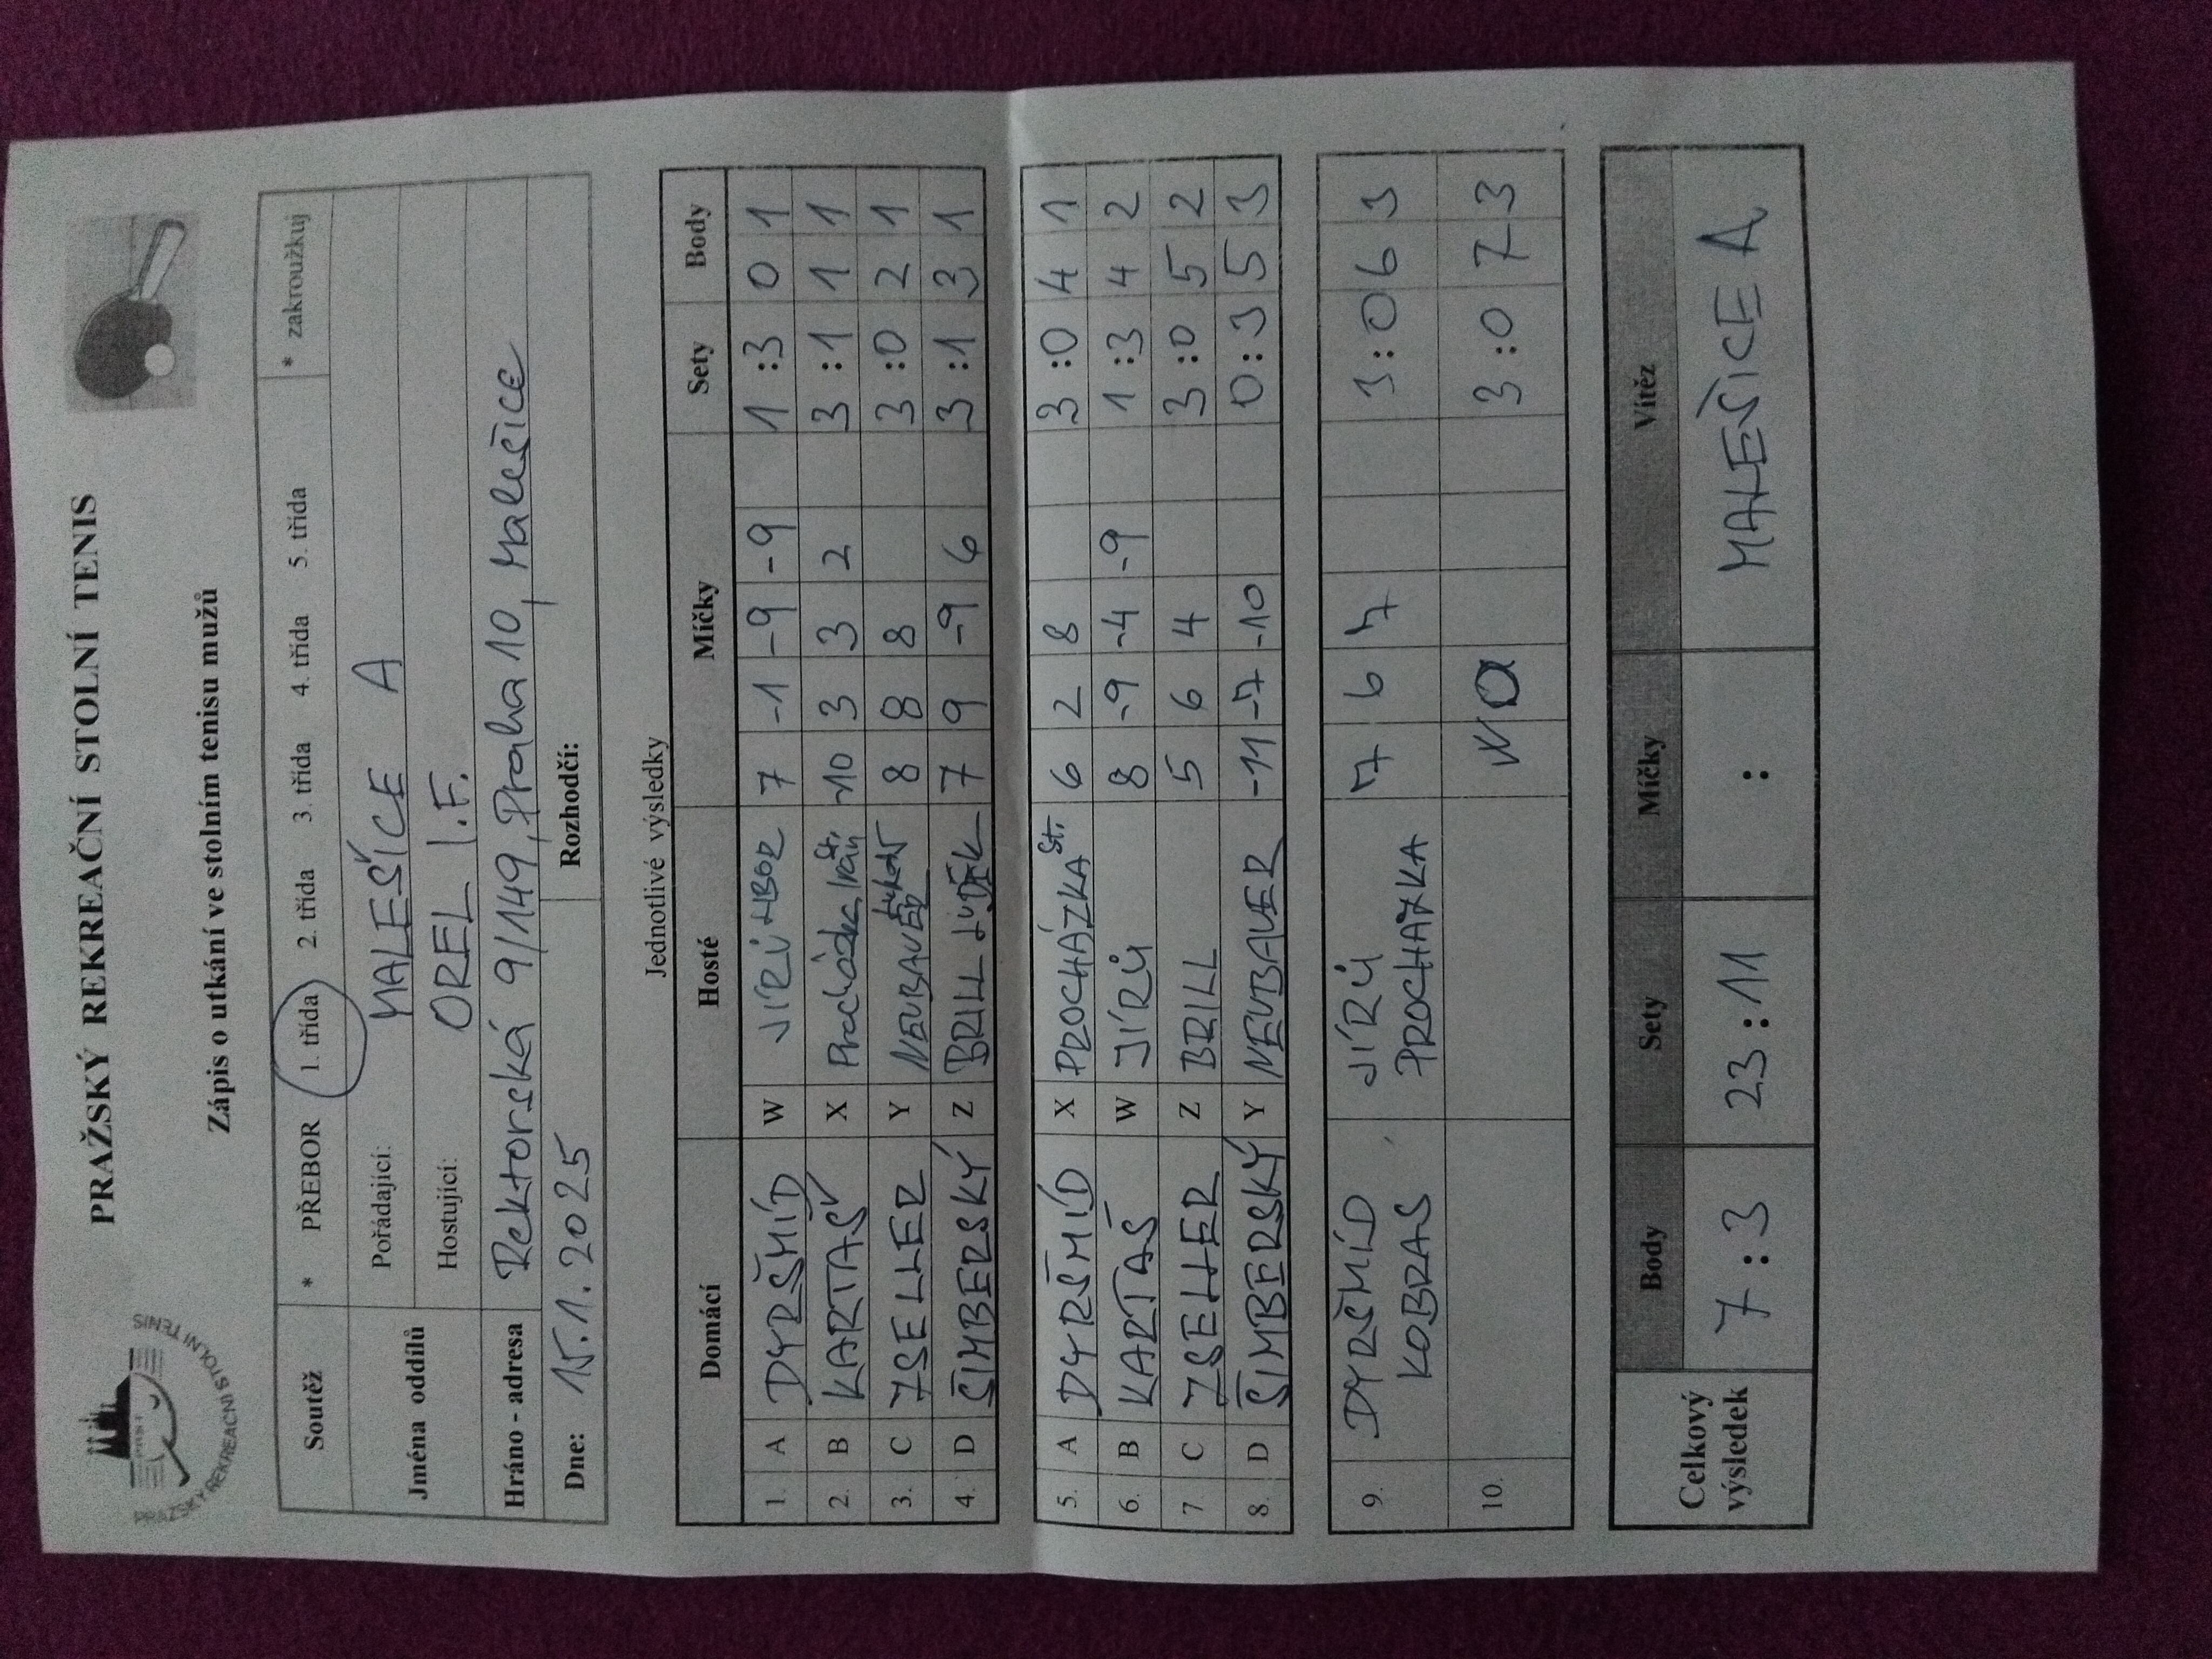 PRAŽSKÝ REKREAČNÍ STOLNÍ TENIS
PRAŽSKÝ REKREAČNÍ STOLNÍ TENIS
Zápis o utkání ve stolním tenisu mužů
Soutěž * PŘEBOR 1. třída 2. třída 3. třída 4. třída 5. třída * zakroužkuj
Jména oddílů Pořádající: MALEŠICE A
Hostující: OREL I.F.
Hráno - adresa Rektorská 9/149, Praha 10, Malešice
Dne: 15.1.2025 Rozhodčí:
Jednotlivé výsledky
Domácí Hosté Míčky Sety Body
1. A DYRŠMÍD W JÍRŮ LIBOR 7 -1 -9 -9 1:3 0 1
2. B KARTAŠ X Procházka Ivan St. -10 3 3 2 3:1 1 1
3. C ZSELLER Y NEUBAUER 8 8 8 3:0 2 1
4. D ŠIMBERSKÝ Z BRILL LUDĚK 7 9 -9 6 3:1 3 1
5. A DYRŠMÍD X PROCHÁZKA St. 6 2 8 3:0 4 1
6. B KARTAŠ W JÍRŮ 8 -9 -4 -9 1:3 4 2
7 C ZSELLER Z BRILL 5 6 4 3:0 5 2
8. D ŠIMBERSKÝ Y NEUBAUER -11 -7 -10 0:3 5 3
9. DYRŠMÍD JÍRŮ 7 6 7 3:0 6 3
KOBRAS PROCHÁZKA
10. WO 3:0 7 3
Celkový výsledek Body Sety Míčky Vítěz
7:3 23:11 : MALEŠICE A